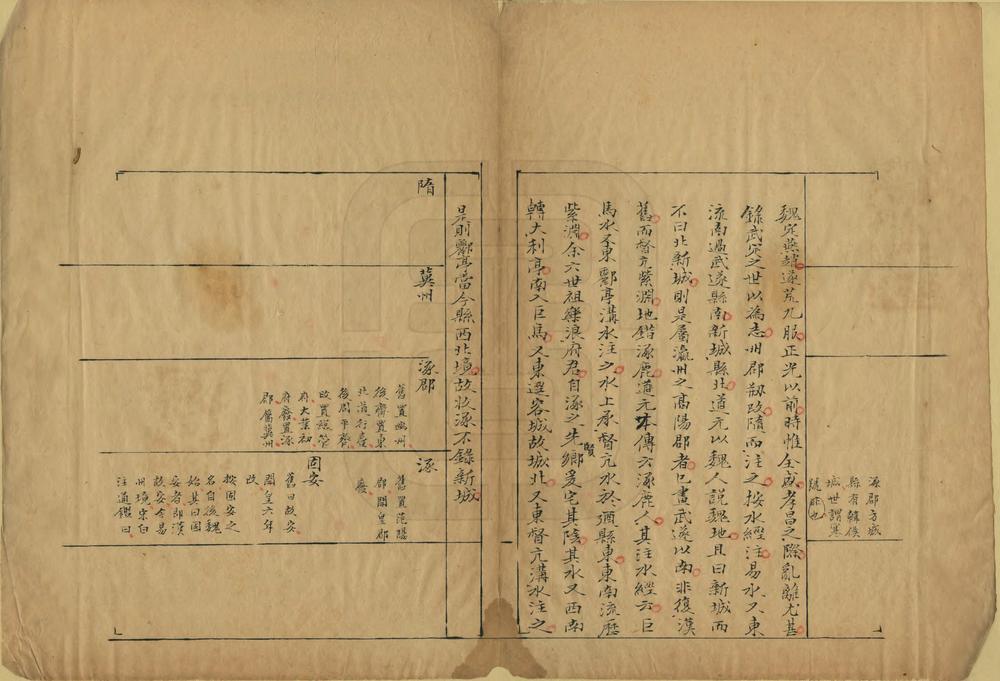 涿郡方城
縣有韓侯
城世謂寒
號非也
魏定燕趙遂荒九服正光以前時惟全盛孝昌之際亂離尤甚
錄武定之世以為志州郡刱改隨而注之按水經注易水又東
流南過武遂縣南新城縣北道元以魏人說魏地且曰新城而
不曰北新城則是屬瀛州之高陽郡者也畫武遂以南非復漢
舊而督亢紫淵地錯涿鹿道元本傳云涿鹿人其注水經云巨
馬水又東酈亭溝水注之水上承督亢水於遒縣東東南流歷
紫淵余六世祖樂浪府君自涿之先賢鄉爰宅其陰其水又西南
轉大利亭南入巨馬又東逕容城故城北又東督亢溝水注之
是則酈亭當今縣西北境故收涿不錄新城
隋
冀州
涿郡
舊置幽州
後齊置東
北道行臺
後周平齊
改置總管
府大業初
府廢置涿
郡屬冀州
涿
舊置范陽
郡開皇郡
廢
固安
舊曰故安
開皇六年
改
按固安之
名自後魏
始其曰固
安者即漢
故安今易
州境宋白
注通鑑曰